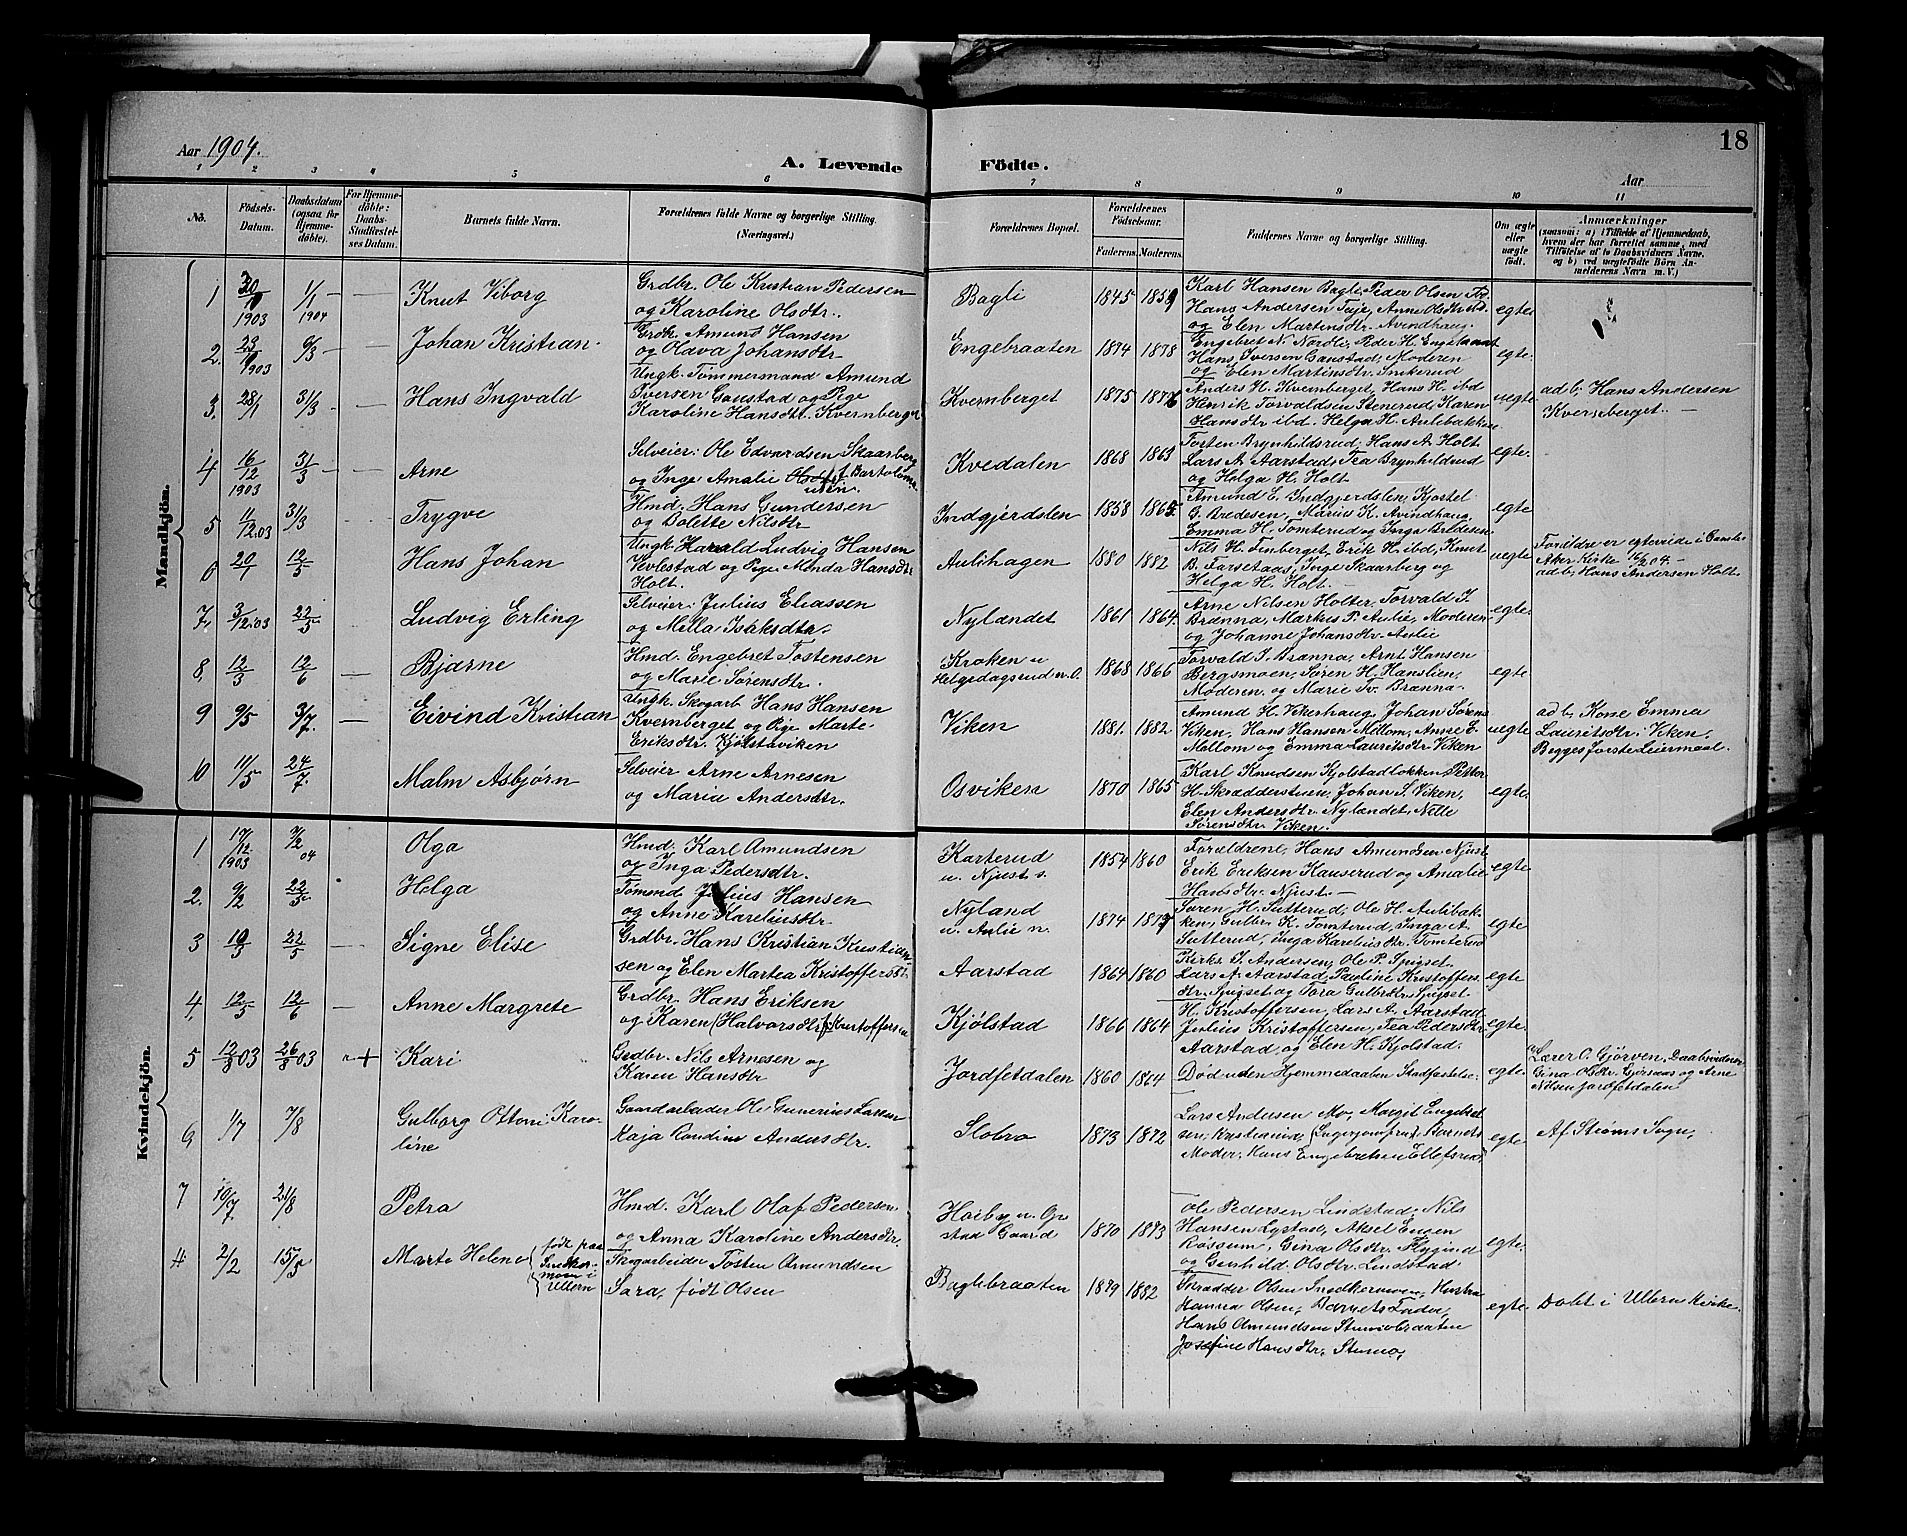 18
Aar 1904.
A. Levende Födte.
Aar
1 2 3 4 5 6 7 8 9 10 11
No.
Födsels-Datum.
Daabsdatum (ogsaa for Hjemmedöbte).
For Hjemmedöbte: Daabs-Stadfæstelses Datum.
Barnets fulde Navn.
Forældrenes fulde Navne og borgerlige Stilling. (Næringsvei.)
Forældrenes Bopæl.
Forældrenes Fødselsaar.
Faderens. Moderens.
Faddernes Navne og borgerlige Stilling.
Om ægte eller uægte født.
Anmærkninger
(saasom: a) i Tilfælde af Hjemmedaab, hvem der har forrettet samme, med Tilföielse af to Daabsvidners Navne. og b) ved uægtefödte Börn Anmelderens Navn m. V.)
Mandkjön.
1 1903 1/1 1904 Knut Viborg
Grdbr. Ole Kristian Pedersen
og Karoline Olsdtr.
Bagli 1845 1859
Karl Hansen Bagli, Peder Olsen
Hans Andersen Teje, Anne Olsdtr
og Elen Martinsdtr. Avindhaug.
egte
2. 1903 6/3 Johan Kristian
Grdbr. Amund Hansen
og Olava Johansdtr
Engebraaten 1874 1878
Engebret N. Nordli, Peder H. Engebraat
Hans Iversen Gaustad, Moderen
og Elen Martinsdtr. Snikerud
egte.
3. 28/1 31/3 Hans Ingvald
Ungk. Tømmermand Amund
Iversen Gaustad og Pige
Karoline Hansdtr. Kvernberget
Kvernberget 1875 1876
Anders H. Kvernberget, Hans H. ibd
Henrik Torvaldsen Stenerud, Karen
Hansdtr ibd. Helga H. Aulibakken
uegte
adb; Hans Andersen
Kvernberget.
4 16/12 1903 31/3 Arne
Selveier: Ole Edvardsen Skaarberg
og Inge Amalie f. Bartolomæusen.
Kvedalen 1868 1863
Torsten Brynhildsrud, Hans A. Holt
Lars A. Aarstad, Tea Brynhildsrud
og Helga H. Holt.
egte.
5 11/12.03 31/3 Trygve
Hmd. Hans Gundersen
og Bolette Nilsdtr
Indgjerdslen 1858 1865.
Amund E. Indgjerdslen, Kjostel
G. Bredesen, Marius K. Avindhaug,
Emma H. Tomterud og Inga Bredesen
egte
6 20/1 12/5 Hans Johan
Ungk. Harald Ludvig Hansen
Vevlestad og Pige Monda Hansdtr
Holt.
Aulihagen 1880 1882
Nils H. Finberget, Erik H. ibd, Knut
B. Farsetaas, Inge Skaarberg og
Helga H. Holt.
uegte
Foreldre er egteviede i
Aker Kirke 16/2 04.
adb; Hans Andersen Holt.
7. 3/12.03 22/5 Ludvig Erling
Selveier: Julius Eliassen
og Mella Isaksdtr.
Nylandet 1861 1864.
Arne Nilsen Holter, Torvald I.
Brænna, Markus P. Aulie, Moderen
og Johanne Johansdtr. Aulie
egte.
8. 12/3 12/6 Bjarne
Hmd. Engebret Tostensen
og Marie Sørensdtr.
Kroken u
Helgedagsrud n. O. 1868 1866
Torvald I. Brænna, Arnt Hansen
Bergsmoen, Søren H. Hanslien,
Moderen og Marie Tv. Brænna.
egte
9 9/5 3/7. Eivind Kristian
Ungk. Skogarb Hans Hansen
Kvernberget og Pige Marte
Eriksdtr. Kjølstaviken
Viken 1881. 1882
Amund H. Vikerhaug, Johan Sørens
Viken, Hans Hansen Mellom, Anne E.
Mellom og Emma Lauritsdtr Viken
uegte
adb; Kone Emma
Lauritsdtr. Viken.
Begges første Leiermaal.
10 11/5 24/7. Malm Asbjørn
Selveier Arne Arnesen
og Maria Andersdtr.
Osviken 1870 1865
Karl Knudsen Kjolstadlokken, Petter
H. Skrædderstuen, Johan S. Viken,
Elen Andersdtr. Nylandet, Nelle
Sørensdtr. Viken.
egte.
Kvindekjön.
1 17/12 1903 7/2 04 Olga
Hmd. Karl Amundsen
og Inga Pedersdtr.
Karterud
u. Njust s. 1857 1860
Foreldrene, Hans Amundsen Njust
Erik Eriksen Hauserud og Amalie
Hansdtr. Njust.
egte
2. 9/2 22/5 Helga
Tømmd. Julius Hansen
og Anne Kareliusdtr
Nyland
u. Aulie n. 1874 1877
Søren H. Sutterud, Ole H. Aulibakken,
Gulbr. K. Tomterud, Inga A.
Sutterud, Inga Kareliusdtr. Tomterud
egte
3 10/3 22/5 Signe Elise
Grdbr. Hans Kristian Kristiansen
og Elen Martea Kristoffersdt.
Aarstad 1864 1860
Kirks. I. Andersen, Ole P. Spigset
Lars A. Aarstad, Pauline Kristoffers
dtr. Spigset og Tora Gulbrdtr. Spigset
egte
4. 12/5 12/6 Anne Margrete
Grdbr. Hans Eriksen
og Karen (Halvorsdtr) f. Kristoffersen
Kjølstad 1866 1864
H. Kristoffersen, Lars A. Aarstad
Julius Kristoffersen, Tea Pedersdtr
Aarstad og Elen H. Kjolstad.
egte
5 12/3 03 26/3 03 + Kari
Grdbr. Nils Arnesen og
Karen Hansdtr
Jordfetdalen 1860 1864
Død uden Hjemmedaaben Stadfæstelse
egte
Lærer O. Gjörven, Daabsvidner
Gina Olsdtr. og Arne
Nilsen Jordfetdalen
6 1/7 7/8 Gulborg Ottoni Karoline
Gaardarbeider Ole Gunerius Larsen
Kaja Randine Andersdtr.
Slobro 1873 1872
Lars Andersen Mo, Margit Engebretsen,
Kristiania, (Lagerjomfru) Barnets
Moder, Hans Engebretsen Ellefsrud
egte
Af Strøms Sogn,
7 10/7. 21/8 Petra
Hmd. Karl Olaf Pedersen
og Anna Karoline Andersdtr.
Hoiby u. Opstad Gaard 1870 1873
Ole Pedersen Lindstad, Nils
Hansen Lystad, Aksel Eugen
Røssum, Gina Olsdtr. Flygind
og Gunhild Olsdtr. Lindstad
egte.
4 2/2 15/5 Marte Helene (født paa Snedkermoen i Ullern
Skogarbeider Tosten Amundsen
Sara, født Olsen
Baglebraaten 1879 1882
Skrædder Olsen Snedkermoen, Hustru
Hanna Olsen, Barnets Fader,
Hans Amundsen Stumobraaten
Josefine Hansdtr. Stumo,
egte.
Dobt i Ullern Kirke.